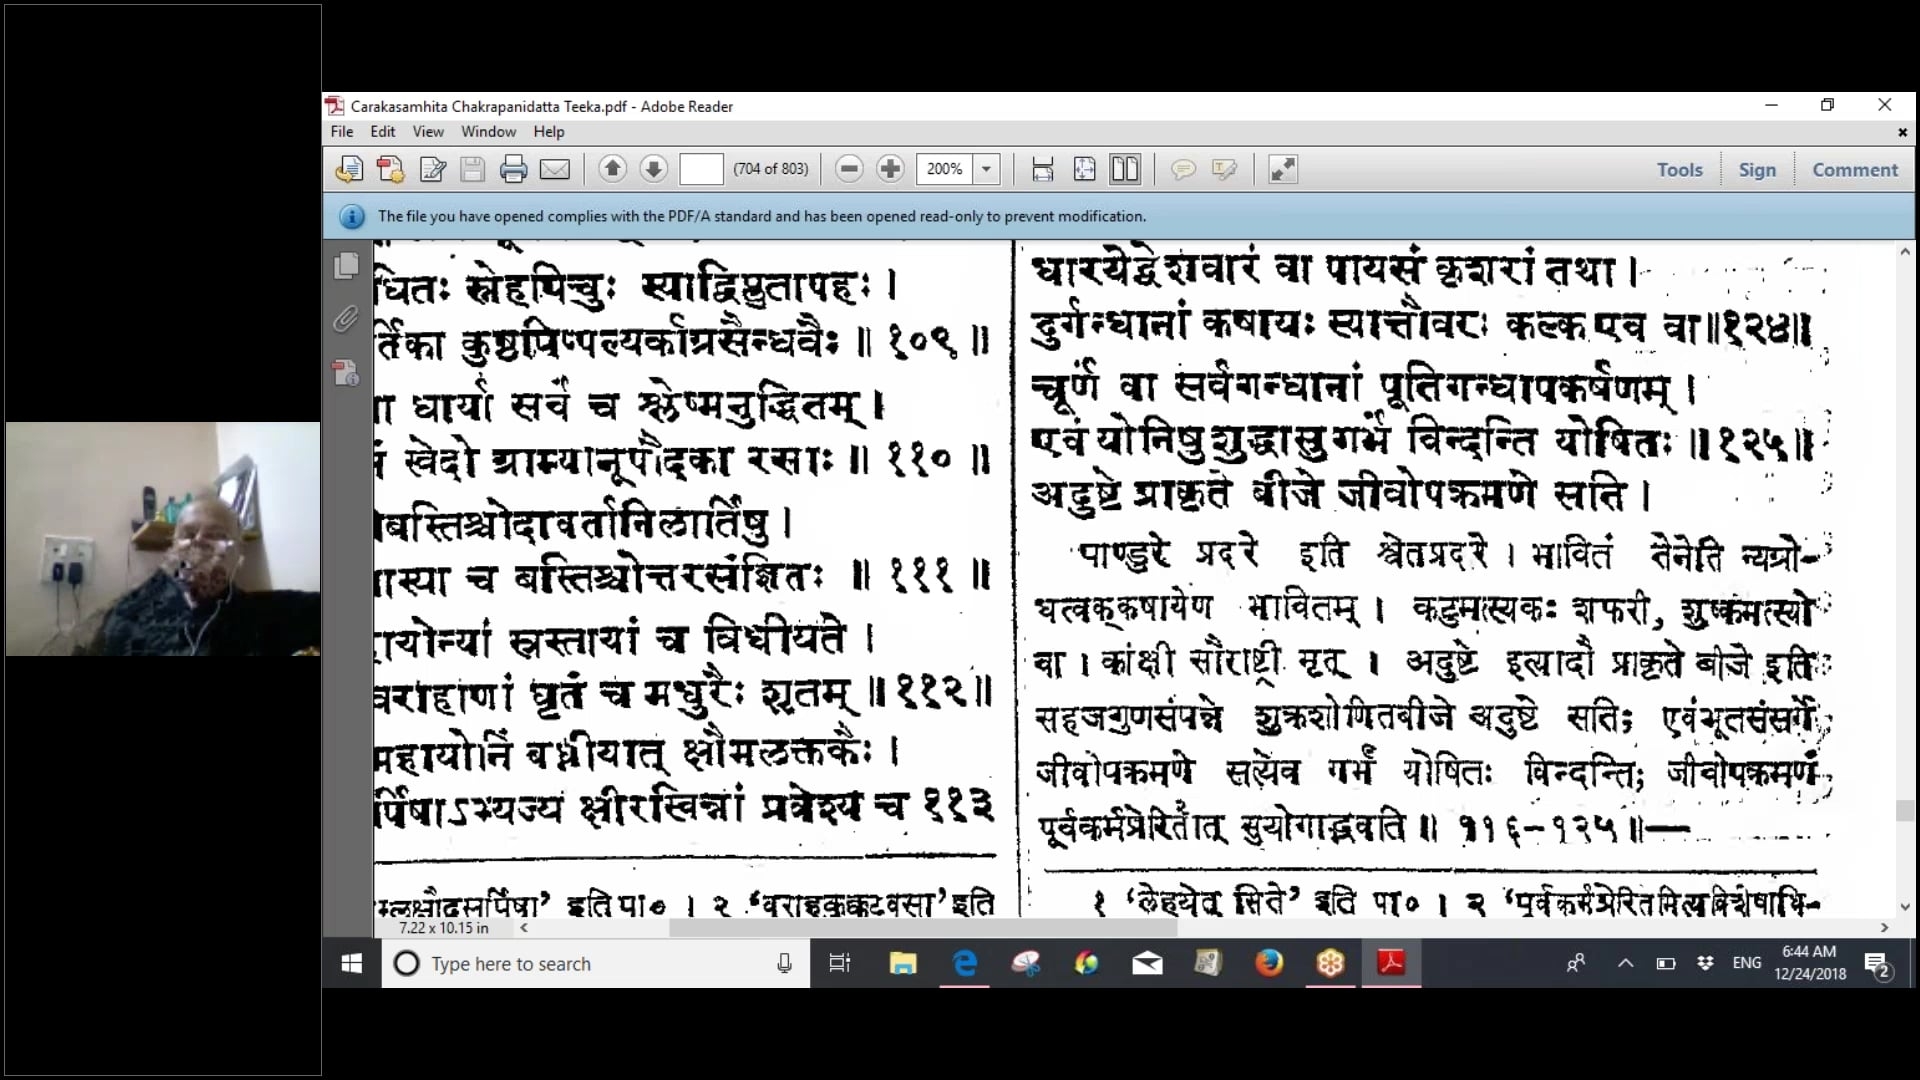 Carakasamhita Chakrapanidatta Teeka.pdf - Adobe Reader
File Edit View Window Help
(704 of 803) 200% Tools Sign Comment
The file you have opened complies with the PDF/A standard and has been opened read-only to prevent modification.
धितः स्नेहपिचुः स्याद्विप्लुतापहः ।
र्तिका कुष्ठपिप्पल्यर्काग्रसैन्धवैः ॥ १०९ ॥
धार्या सर्वं च श्लेष्मनुद्धितम् ।
स्वेदो ग्राम्यानूपौदका रसाः ॥ ११० ॥
बस्तिश्चोदावर्तानिलार्तिषु ।
ास्या च बस्तिश्चोत्तरसंज्ञितः ॥ १११ ॥
ायोन्यां स्रस्तायां च विधीयते ।
वराहाणां घृतं च मधुरैः शृतम् ॥ ११२ ॥
महायोनिं बध्नीयात् क्षौमलक्तकैः ।
र्पिषाऽभ्यज्य क्षीरस्विन्नां प्रवेश्य च ११३
म्लक्षौद्रसर्पिषा’ इति पा० । २ ‘वराहकुक्कुटवसा’ इति
धारयेद्वेशवारं वा पायसं कृशरां तथा ।
दुर्गन्धानां कषायः स्यात्तौवरः कल्क एव वा ॥ १२४ ॥
चूर्णं वा सर्वगन्धानां पूतिगन्धापकर्षणम् ।
एवं योनिषु शुद्धासु गर्भं विन्दन्ति योषितः ॥ १२५ ॥
अदुष्टे प्राकृते बीजे जीवोपक्रमणे सति ।
पाण्डरे प्रदरे इति श्वेतप्रदरे । भावितं तेनेति न्यग्रो-
धत्वक्कषायेण भावितम् । कटुमत्स्यकः शफरी, शुष्कमत्स्यो
वा । कांक्षी सौराष्ट्री मृत् । अदुष्टे इत्यादौ प्राकृते बीजे इति
सहजगुणसंपन्ने शुक्रशोणितबीजे अदुष्टे सति; एवंभूतसंसर्गे
जीवोपक्रमणे सत्येव गर्भं योषितः विन्दन्ति; जीवोपक्रमणं
पूर्वकर्मप्रेरितात् सुयोगाद्भवति ॥ ११६-१२५ ॥—
१ ‘लेहयेत् सिते’ इति पा० । २ ‘पूर्वकर्मप्रेरितमित्यविशेषाभि-
7.22 x 10.15 in
Type here to search
ENG
6:44 AM
12/24/2018
2